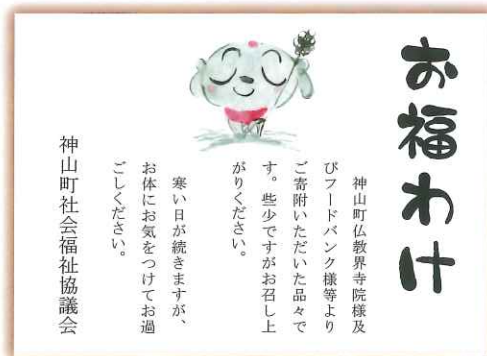 お福わけ
神山町仏教界寺院様及
びフードバンク様等より
ご寄附いただいた品々で
す。些少ですがお召し上
がりください。
寒い日が続きますが、
お体にお気をつけてお過
ごしください。
神山町社会福祉協議会